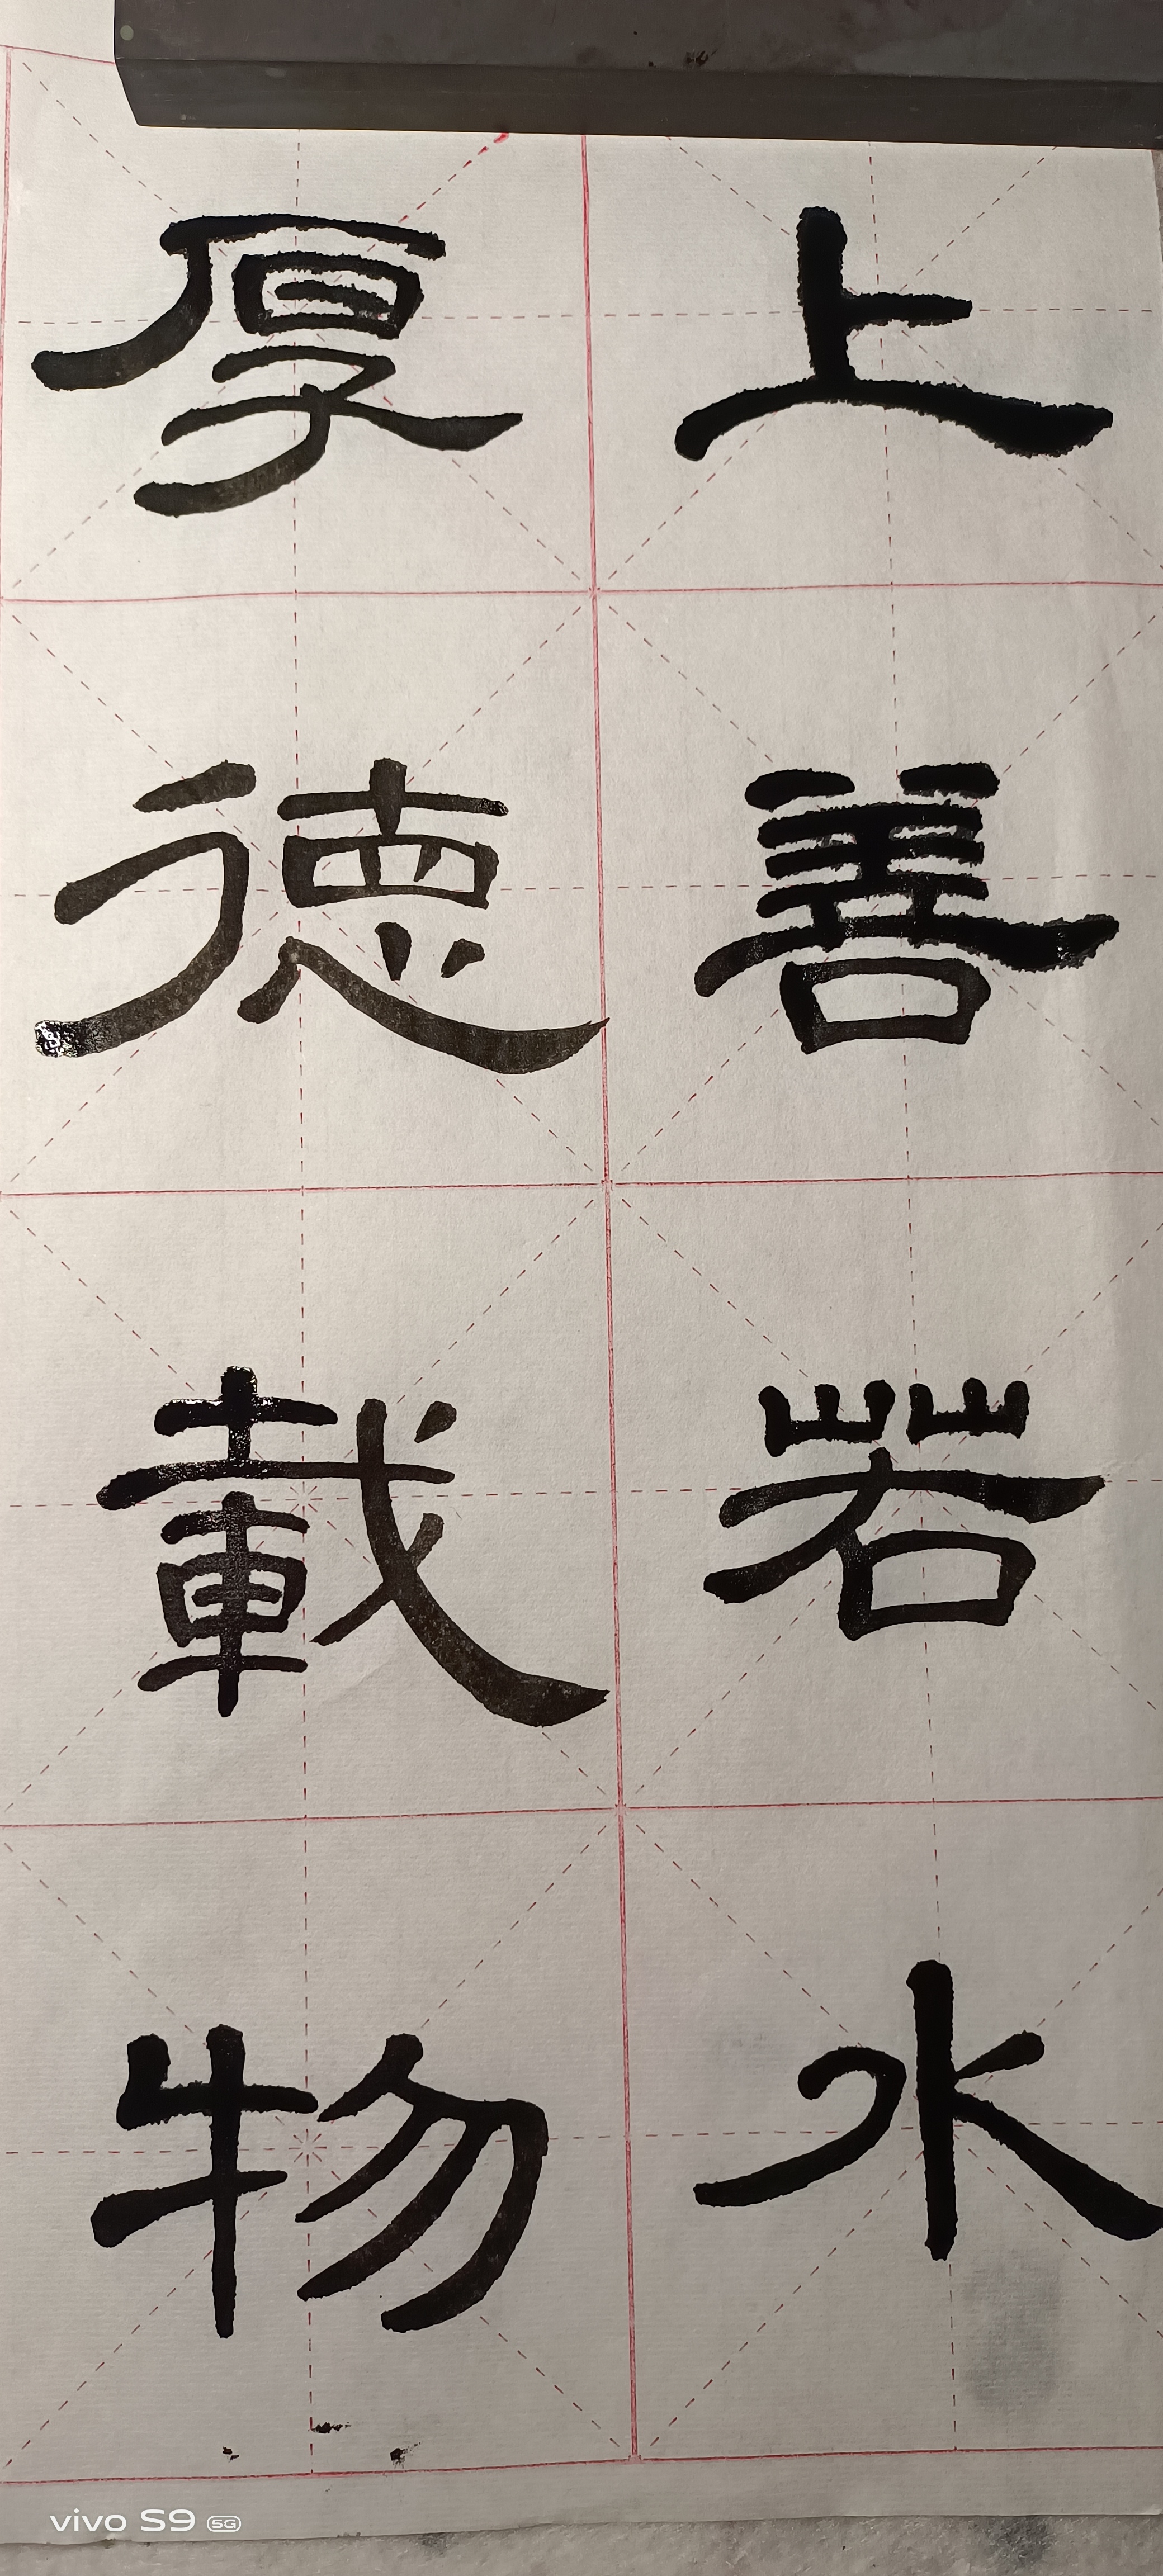 上善若水
厚德載物
vivo S9 5G